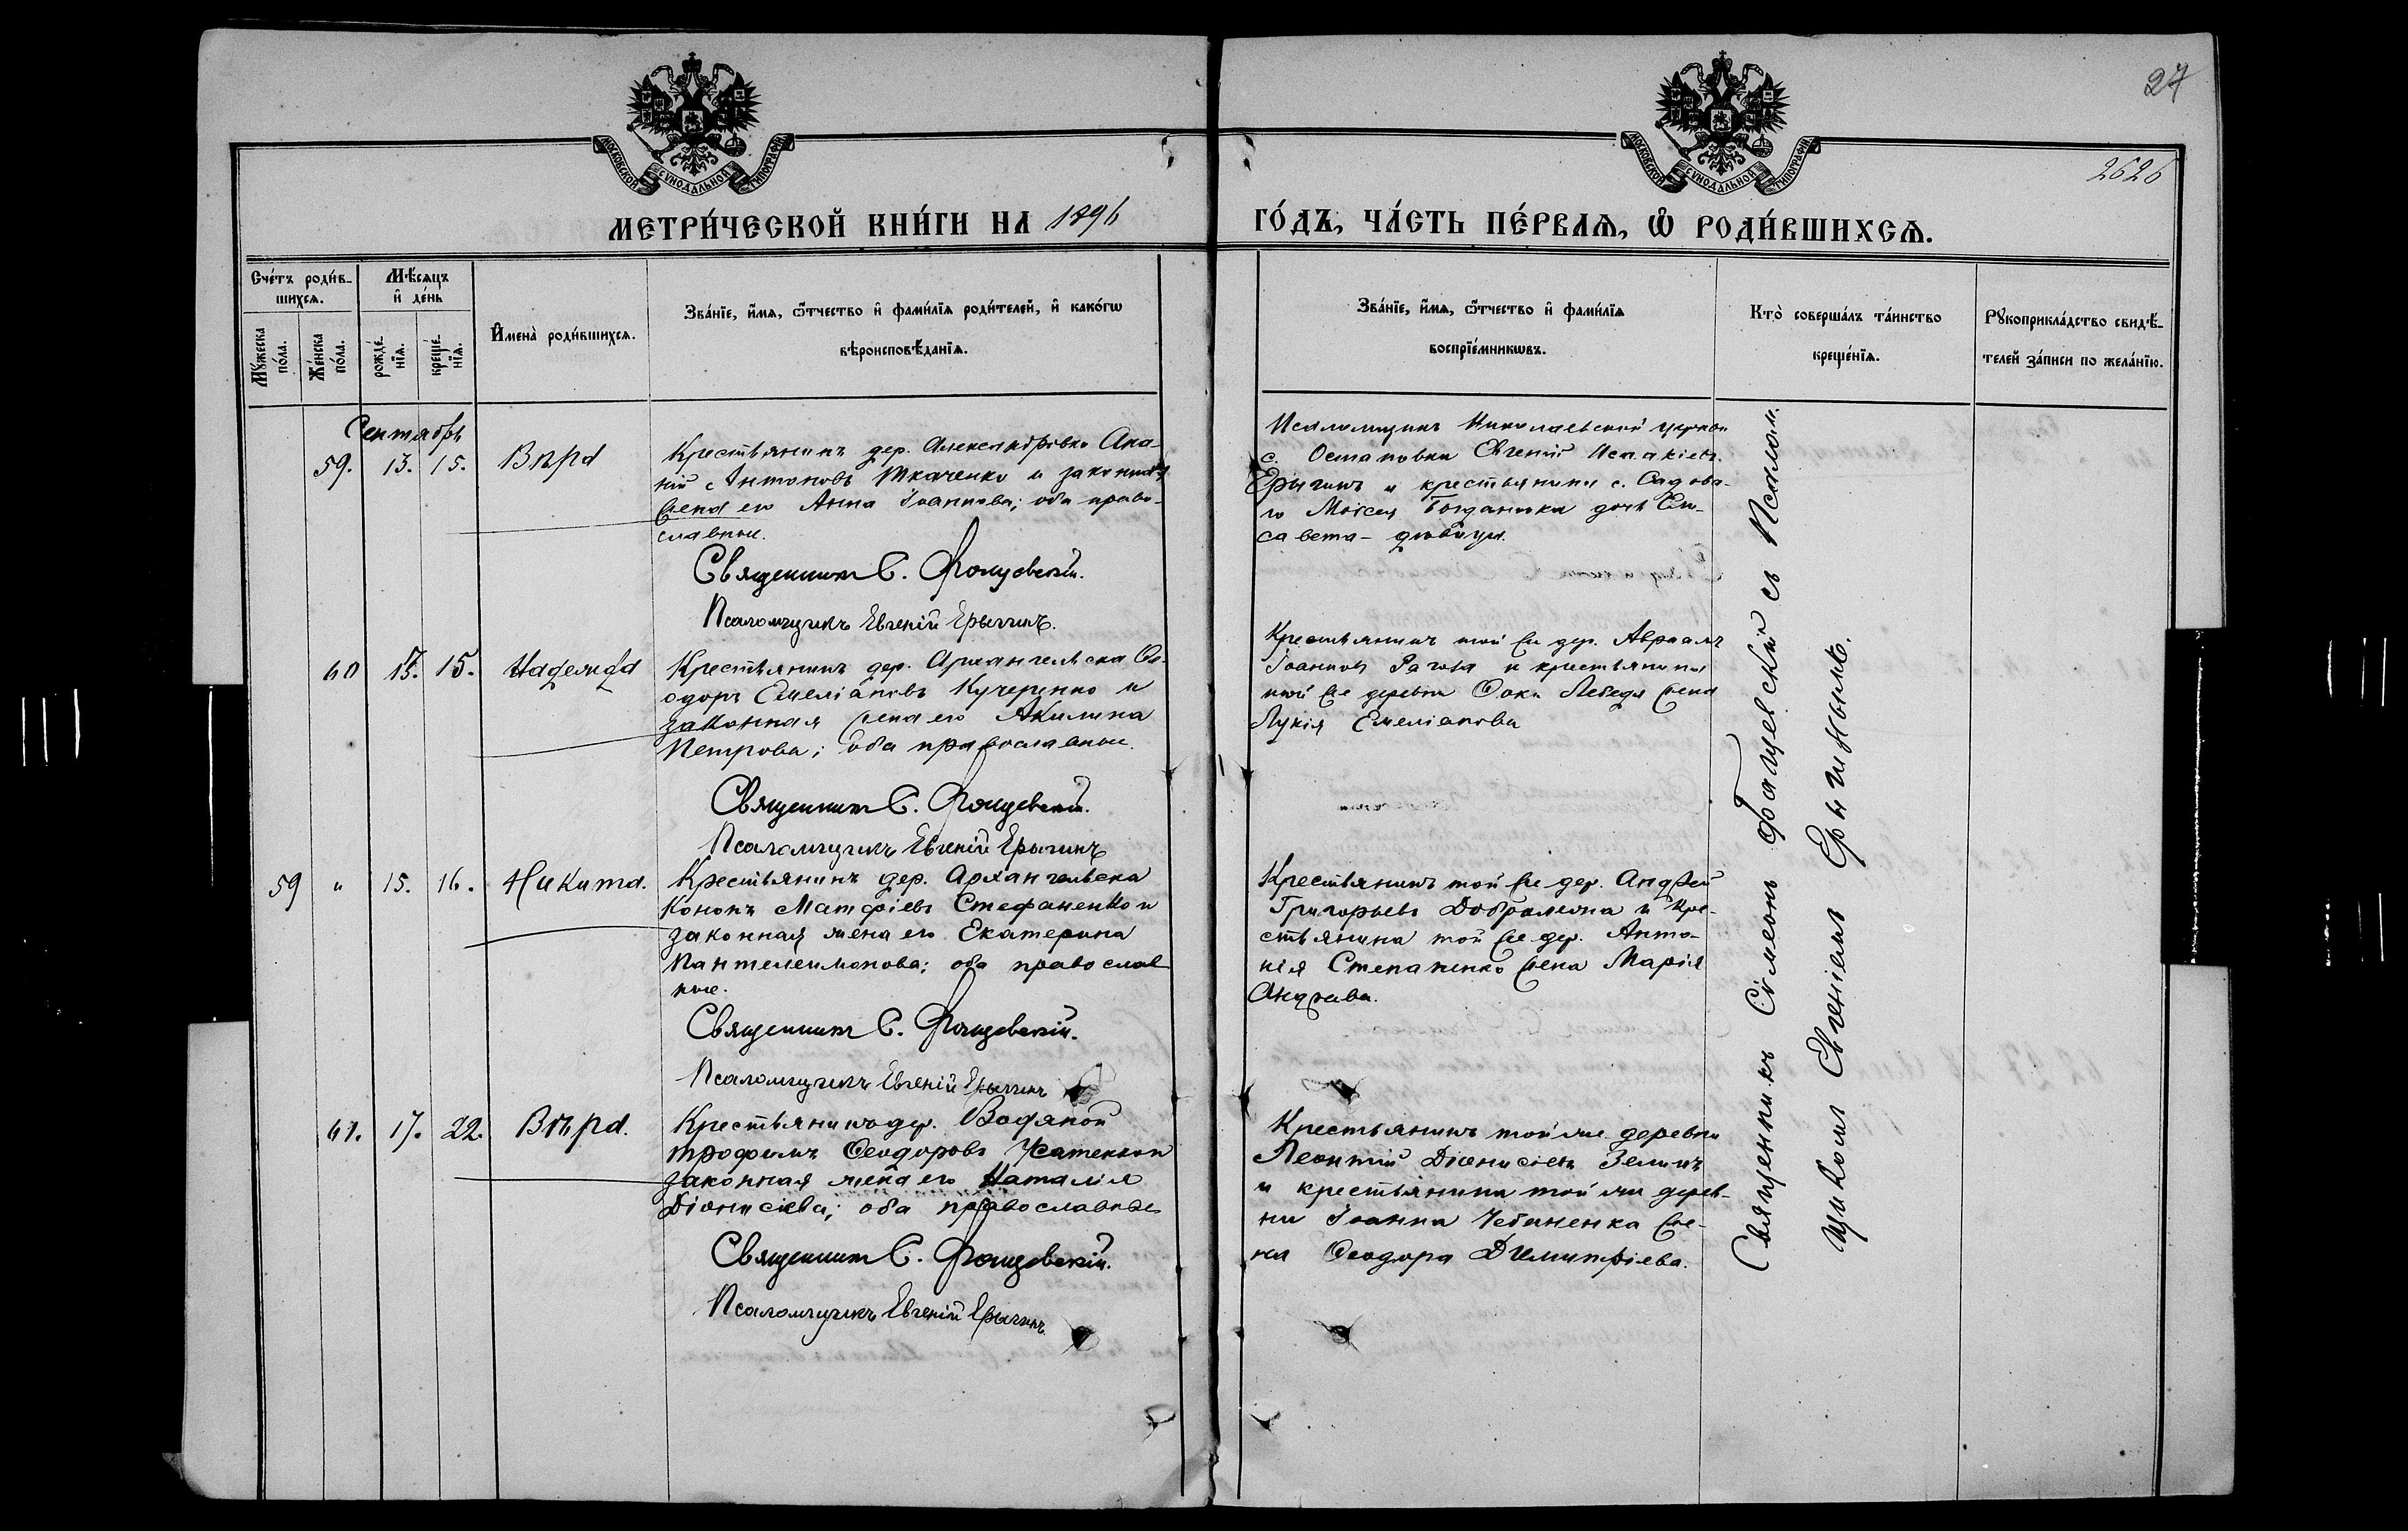 27
2626
МОСКОВСКОЙ СѴНОДАЛЬНОЙ ТИПОГРАФІИ
МОСКОВСКОЙ СѴНОДАЛЬНОЙ ТИПОГРАФІИ
МЕТРИ́ЧЕСКОЙ КНИ́ГИ НА 1896 ГО́ДЪ, ЧА́СТЬ ПЕ́РВАѦ, Ѡ҆ РОДИ́ВШИХСѦ.
Сче́тъ роди́в-
шихсѧ.
Мꙋ́жеска
по́ла.
Же́нска
по́ла.
Мѣ́сѧцъ
и҆ де́нь
рожде́-
нїѧ.
креще́-
нїѧ.
И҆мена̀ роди́вшихсѧ.
Зва́нїе, и҆́мѧ, ѻ҆́тчество и҆ фами́лїѧ роди́телей, и҆ како́гѡ
вѣроисповѣ́данїѧ.
Зва́нїе, и҆́мѧ, ѻ҆́тчество и҆ фами́лїѧ
воспрїе́мникѡвъ.
Кто̀ соверша́лъ та́инство
креще́нїѧ.
Рꙋкоприкла́дство свидѣ́-
телей за́писи по жела́нїю.
Сентябрь
59. 13. 15. Вѣра
Крестьянинъ дер. Александровки Ака-
кій Антоновъ Ткаченко и законная
жена его Анна Іоаннова; оба право-
славные.
Священникъ С. Фащевскій.
Псаломщикъ Евгеній Ерыгинъ.
Псаломщикъ Николаевской церкви
с. Остаповки Евгеній Исаакіевъ
Ерыгинъ и крестьянина с. Садова-
го Моісея Богданика дочь Ели-
савета - дѣвица.
60 15. 15. Надежда
Крестьянинъ дер. Архангельска Ѳе-
одоръ Емеліановъ Кучеренко и
законная жена его Акилина
Петрова; оба православные.
Священникъ С. Фащевскій.
Псаломщикъ Евгеній Ерыгинъ
Крестьянинъ той же дер. Авраамъ
Іоанновъ Рагоза и крестьянина
той же деревни Ѳоки Лебедя жена
Лукія Емеліанова
59 " 15. 16. Никита.
Крестьянинъ дер. Архангельска
Кононъ Матфіевъ Стефаненко и
законная жена его Екатерина
Пантелеимонова; оба православ
ные.
Священникъ С. Фащевскій.
Псаломщикъ Евгеній Ерыгинъ
Крестьянинъ той же дер. Андрей
Григорьевъ и кре-
стьянина той же дер. Анто-
нія Степаненко жена Марія
61. 17. 22. Вѣра.
Крестьянинъ дер. Водяной
Трофимъ Ѳеодоровъ Усатенко и
законная жена его Наталія
Діонисіева; оба православные
Священникъ С. Фащевскій.
Псаломщикъ Евгеній Ерыгинъ
Крестьянинъ той же деревни
Леонтій Діонисіевъ
и крестьянина той же дерев-
ни Іоанна Чебаненка же-
на Ѳеодора Димитріева.
Священникъ Сѵмеонъ Фащевскій съ Псалом-
щикомъ Евгеніемъ Ерыгинымъ.